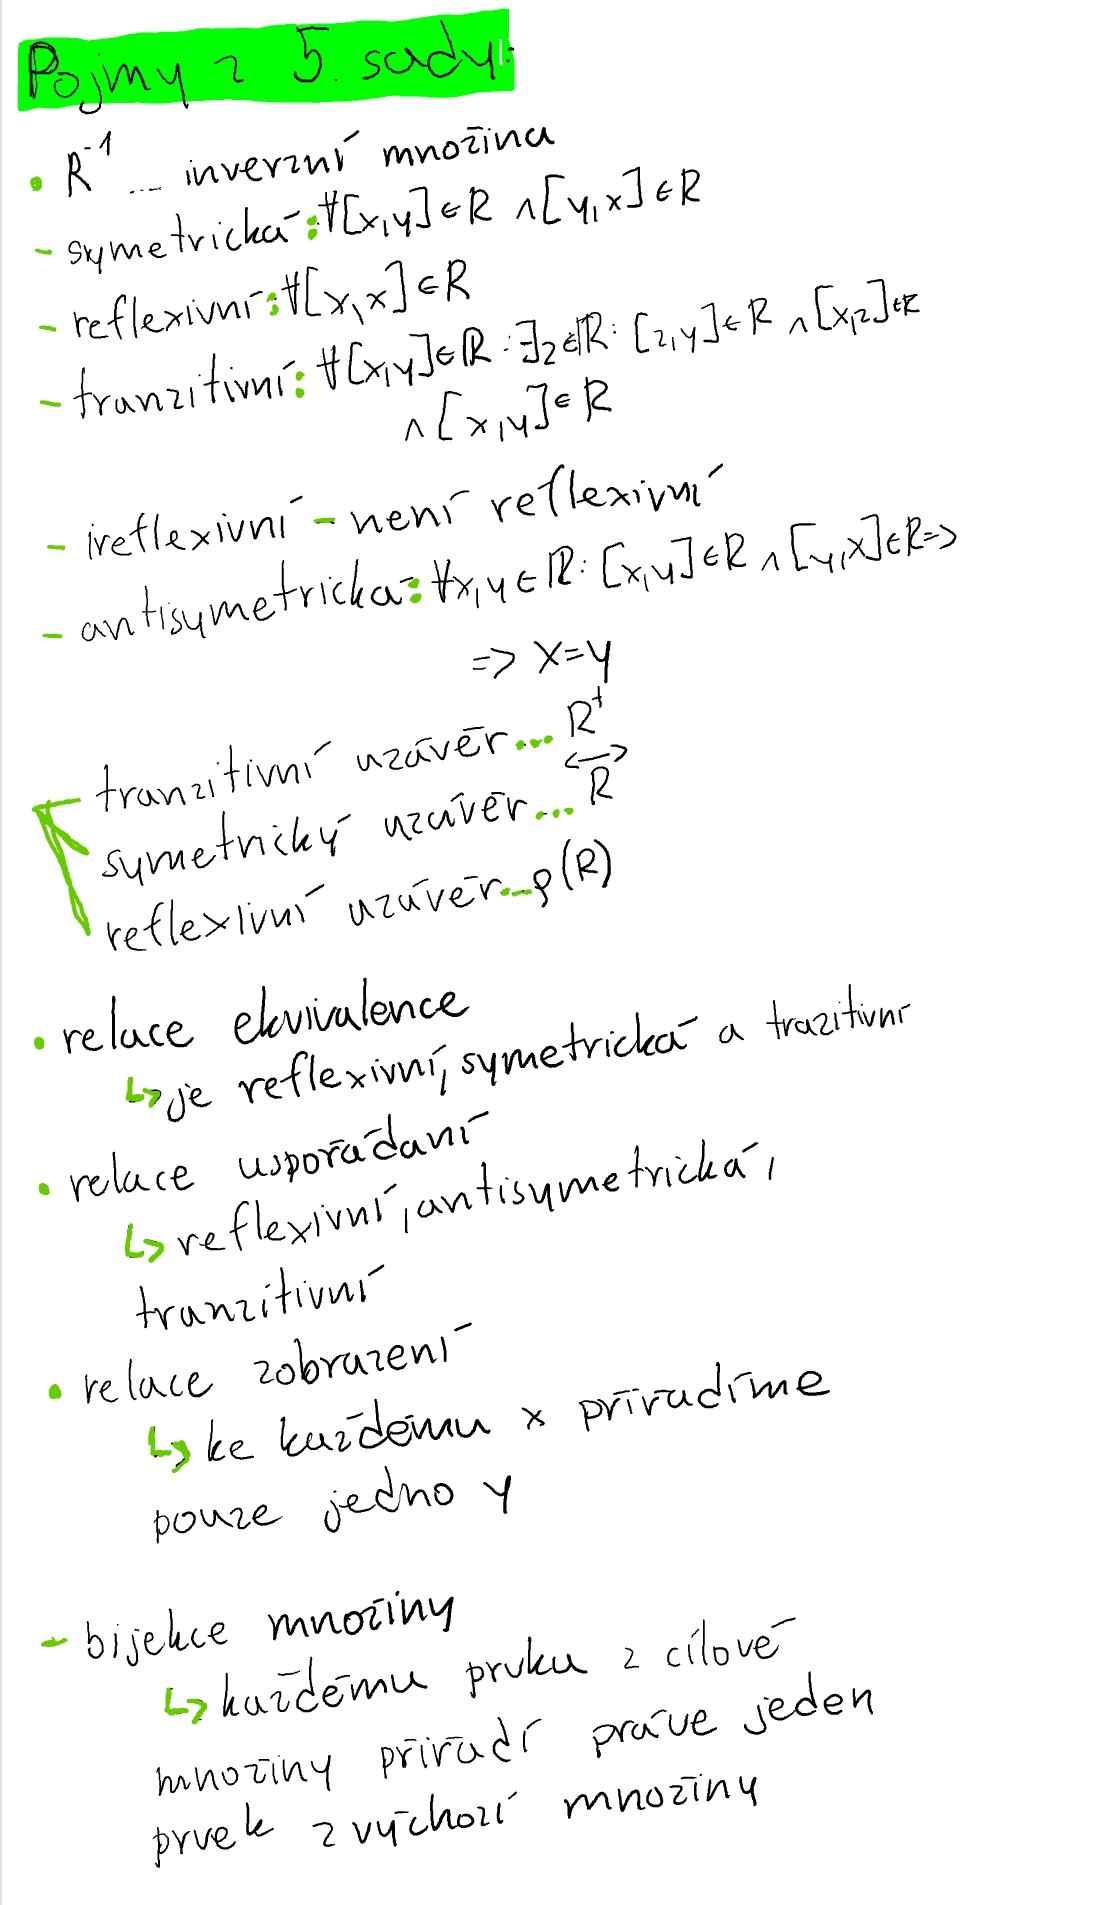 Pojmy z 5. sady:
• R⁻¹ ... inverzní množina
- symetrická: ∀[x,y]∈R ∧[y,x]∈R
- reflexivní: ∀[x,x]∈R
- tranzitivní: ∀[x,y]∈ℝ: ∃z∈ℝ: [z,y]∈R ∧[x,z]∈R
∧[x,y]∈R
- ireflexivní - není reflexivní
- antisymetrická: ∀x,y∈ℝ: [x,y]∈R ∧[y,x]∈R=>
=> x=y
tranzitivní uzávěr... R⁺
symetrický uzávěr... R⃡
reflexivní uzávěr... ρ(R)
• relace ekvivalence
↳ je reflexivní, symetrická a trazitivní
• relace uspořádaní
↳ reflexivní, antisymetrická,
tranzitivní
• relace zobrazení
↳ ke každému x přiradíme
pouze jedno y
- bijekce množiny
↳ každému prvku z cílové
množiny přiradí práve jeden
prvek z výchozí množiny